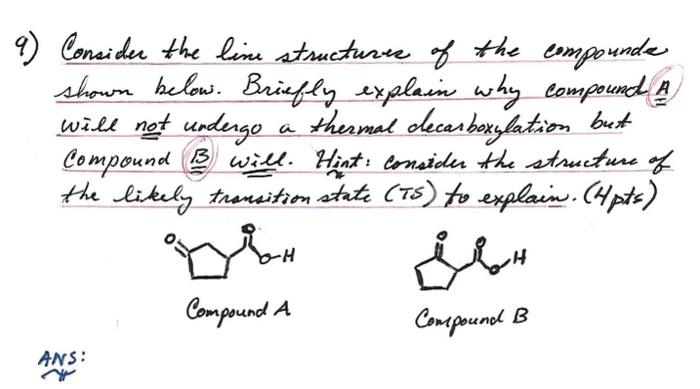 9) Consider the line structures of the compounds
shown below. Briefly explain why compound A
will not undergo a thermal decarboxylation but
Compound B will. Hint: consider the structure of
the likely transition state (TS) to explain. (4pts)
O O O-H O O O-H
Compound A Compound B
ANS: